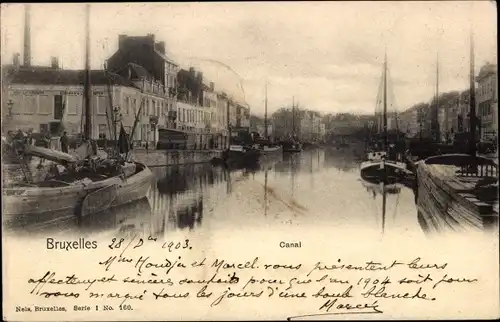 Bruxelles
28 Dre 1903.
Canal
Mme Houdijn et Marcel vous présentent leurs
affectueux et sincères souhaits pour que l'an 1904 soit pour
vous marqué tous les jours d'une boule blanche.
Marcel
Nels, Bruxelles, Serie 1 No. 160.